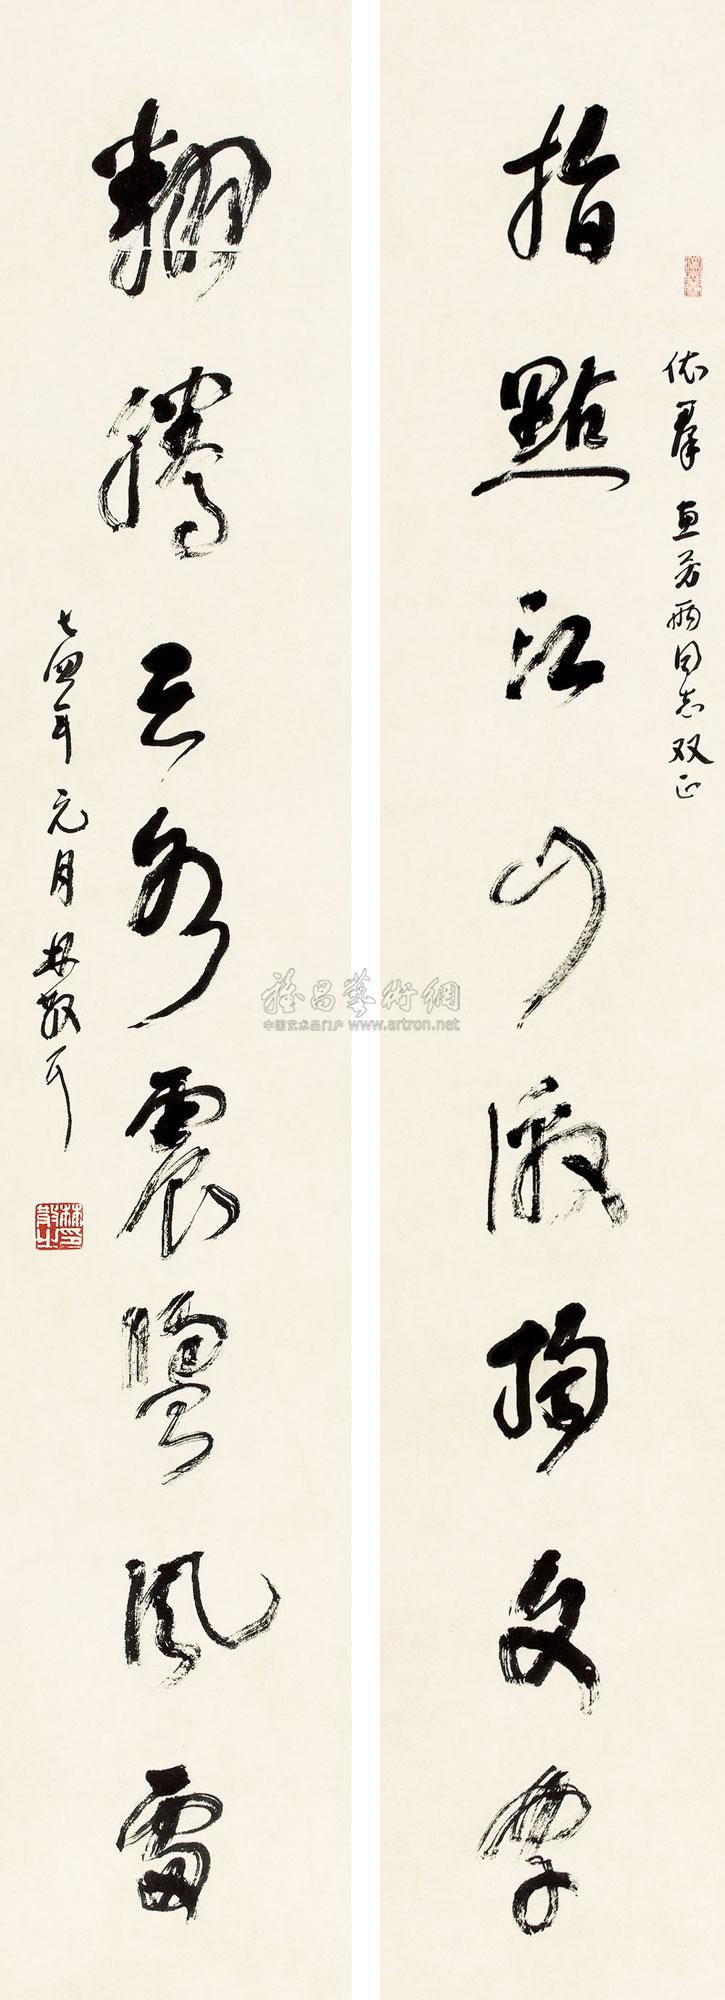 依羣惠芳兩同志双正
指點江山激揚文字
翻騰云水震盪風雷
七四年元月林散耳
林散之印
雅昌藝術網
中国艺术品门户 www.artron.net